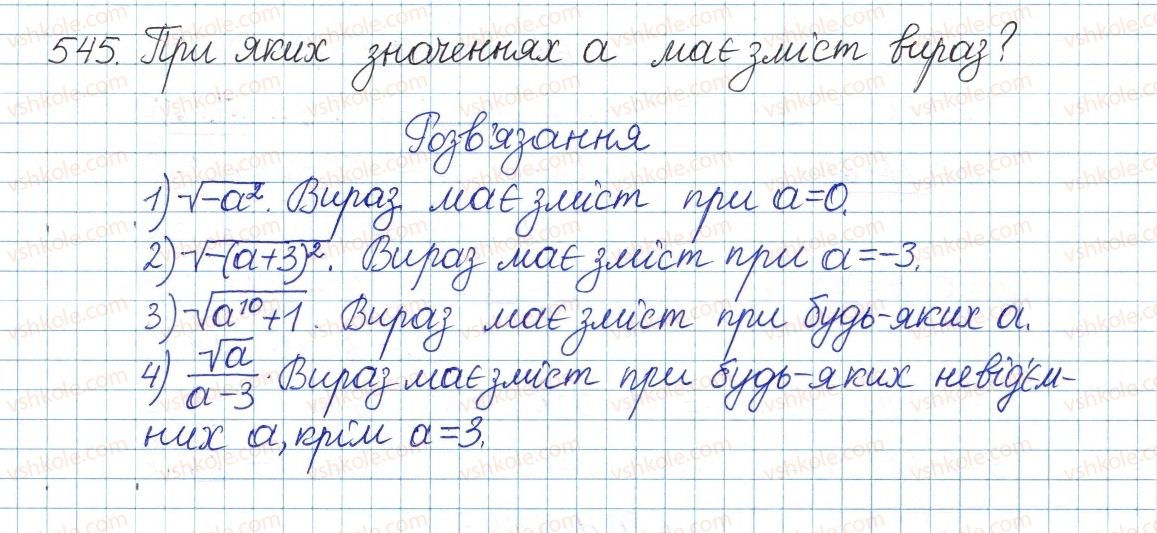 545. При яких значеннях а має зміст вираз?
Розв'язання
1) √-a². Вираз має зміст при a=0.
2) √-(a+3)². Вираз має зміст при a=-3.
3) √a¹⁰+1. Вираз має зміст при будь-яких a.
4) √a / a-3. Вираз має зміст при будь-яких невід'єм-
них a, крім a=3.
vshkole.com